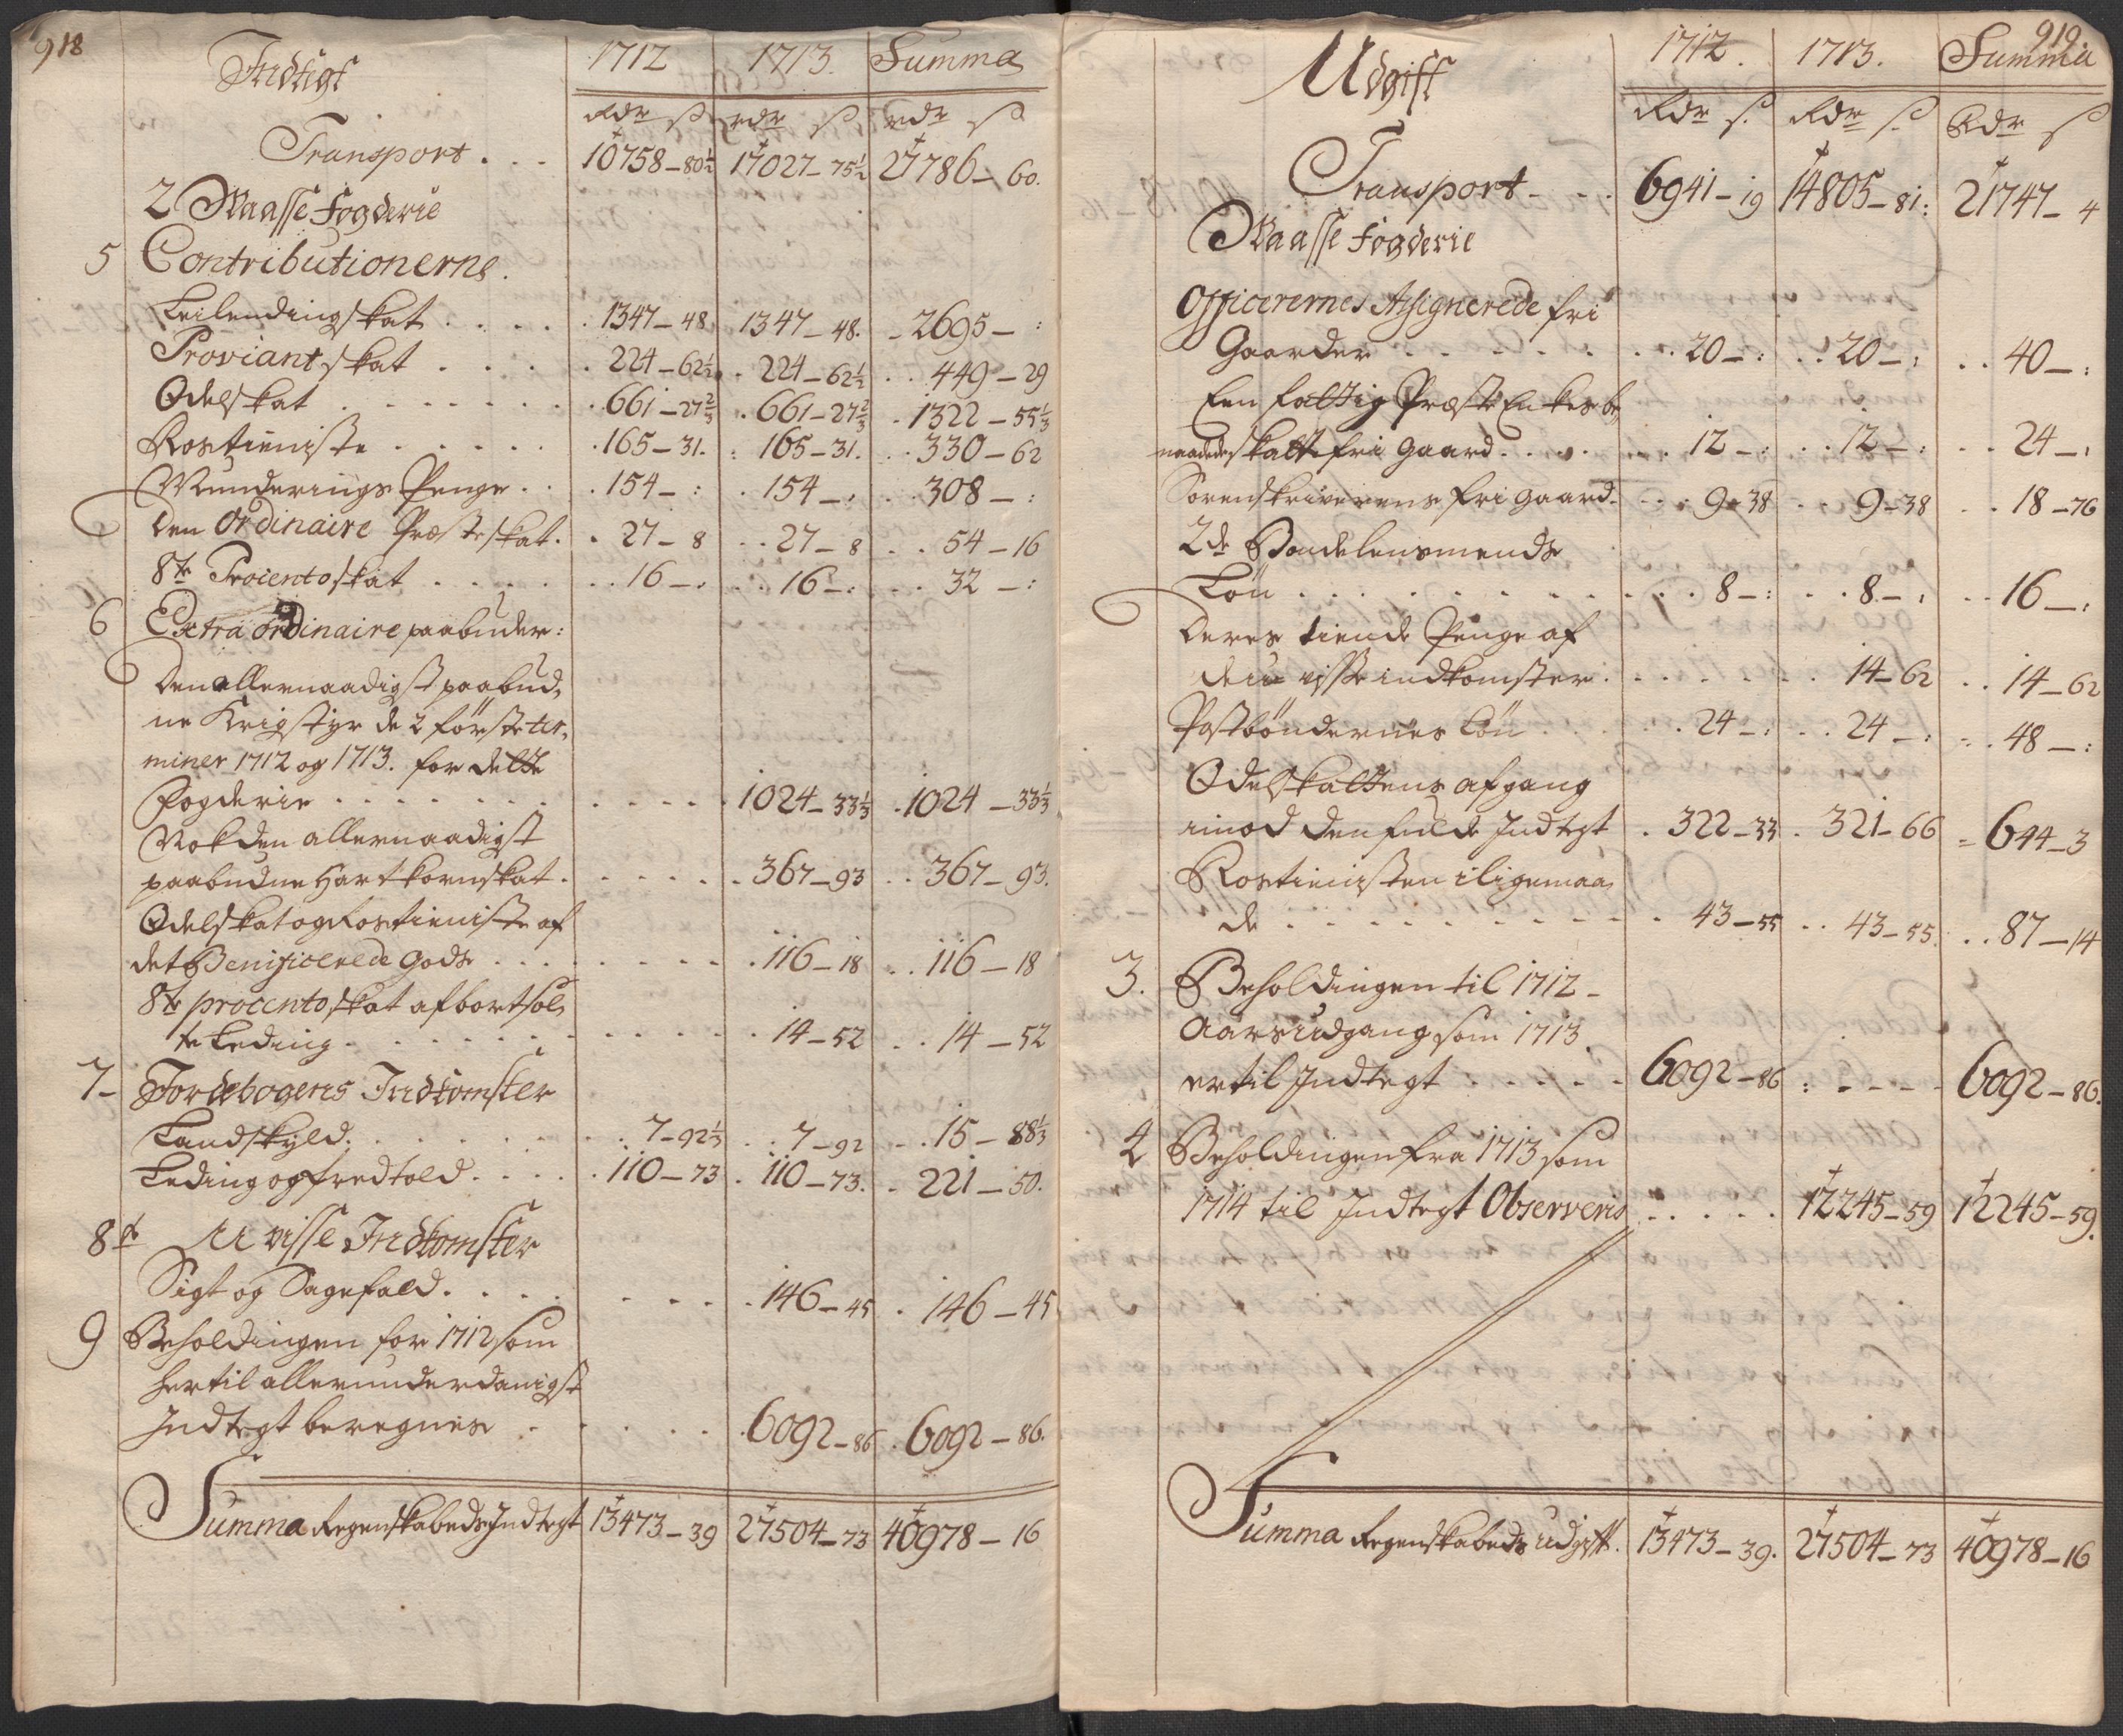 918
Indtegt 1712 1713. Summa
Rdr s Rdr s Rdr s
Transport . . . 10758–80½ 17027–75½ 27786– 60.
2 Maasse Fogderie
5 Contributionerne.
Leilendingskat . . . . . 1347–48 1347–48. – 2695– :
Proviantskat . . . . . 224–62½ . 224–62½ . . 449–29
Odelskat . . . . . . . 661–27⅔ . 661–27⅔ . 1322–55⅓
Rostieniste . . . . . . 165–31. : 165–31. . . 330–62
Munderings Penge . . . 154– : . 154– : . . 308– :
Den Ordinaire Præsteskat. . 27– 8 . . 27– 8 . . 54–16
8te Prociento skat . . . . . . 16– : . . 16– : . . 32– :
6 Extra ordinaire paabuder:
Den allernaadigst paabud,
ne Krigstyr de 2 förste ter,
miner 1712 og 1713. for dette
Fogderie . . . . . . . . . . 1024–33⅓ . 1024–33⅓
Nok den allernaadigst
paabudne Hartkornskat . . . . . . 367–93 . . 367–93.
Odelskat og Rostieniste af
det Benificerede Gods . . . . . . . 116–18 . . 116–18
8te procento skat af bortsol,
te Leding . . . . . . . . . 14–52 . . 14–52
7– Jordebogens Indkomster
Landskyld. . . . . . . . 7–92⅓ . . 7–92 . . 15–88⅓
Leding og fredtold . . . . . 110–73 . 110–73. . 221–50.
8de U visse Indkomster
Sigt og Sagefald . . . . . . . . 146–45 . 146–45
9 Beholdingen for 1712 som
hertil allerunderdanigst
Indtegt beregnes . . . . . . 6092–86 . 6092–86.
Summa Regenskabeds Indtegt 13473–39 27504–73 40978–16
919
Udgift 1712. 1713. Summa
Rdr s. Rdr s. Rdr s
Transport – . . 6941–19 14805–81: 21747– 4
Maasse Fogderie
Officerernes Assignerede fri
Gaarder . . . . . . . . . 20– : . . 20– : . . 40– :
Een fattig Præste Enkes be,
naadede skatte fri Gaard . . . . . . 12– : . . 12– : . . 24– :
Sorenskriverens fri gaard . . . . 9–38 . . 9–38 . . 18–76
2de Bondelensmends
Lön . . . . . . . . . . . 8– : . . 8– : . . 16– :
Deres tiende Penge af
de u visse indkomster . . . . . . . 14–62 . . 14–62
Postböndernes Lön . . . . . . 24– : . . 24– : . . 48– :
Odelskattens afgang
imod den fulde Indtegt . 322–33 . 321–66 – 644–3
Rostienisten i ligemaa,
de . . . . . . . . . . . . 43–55 . . 43–55. . . 87–14
3. Beholdingen til 1712–
Aars udgang som 1713
er til Indtegt . . . . . 6092–86 : . . . . 6092–86.
4 Beholdingen fra 1713 som
1714 til Indtegt Observeris . . . . . 12245–59 12245–59.
Summa Regenskabeds udgift. 13473–39. 27504–73 40978–16